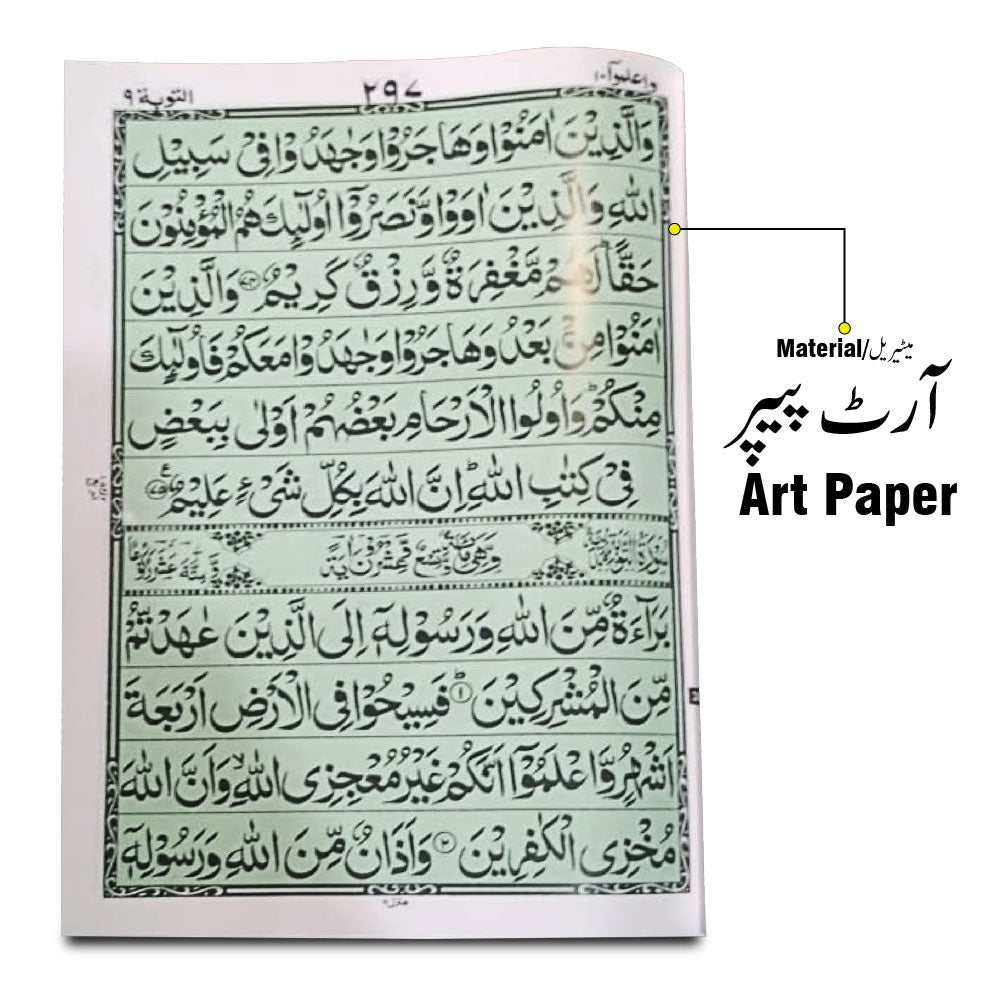 واعلموا ١٠
٢٩٧
التوبة ٩
وَالَّذِيْنَ اٰمَنُوْا وَهَاجَرُوْا وَجٰهَدُوْا فِىْ سَبِيْلِ
اللّٰهِ وَالَّذِيْنَ اٰوَوْا وَّنَصَرُوْۤا اُولٰٓئِكَ هُمُ الْمُؤْمِنُوْنَ
حَقًّا ؕ لَهُمْ مَّغْفِرَةٌ وَّرِزْقٌ كَرِيْمٌ ﴿۷۴﴾ وَالَّذِيْنَ
اٰمَنُوْا مِنْۢ بَعْدُ وَهَاجَرُوْا وَجٰهَدُوْا مَعَكُمْ فَاُولٰٓئِكَ
مِنْكُمْ ؕ وَاُولُوا الْاَرْحَامِ بَعْضُهُمْ اَوْلٰى بِبَعْضٍ
فِىْ كِتٰبِ اللّٰهِ ؕ اِنَّ اللّٰهَ بِكُلِّ شَىْءٍ عَلِيْمٌ ﴿۷۵﴾
بَرَآءَةٌ مِّنَ اللّٰهِ وَرَسُوْلِهٖۤ اِلَى الَّذِيْنَ عٰهَدْتُّمْ
مِّنَ الْمُشْرِكِيْنَ ؕ ﴿۱﴾ فَسِيْحُوْا فِى الْاَرْضِ اَرْبَعَةَ
اَشْهُرٍ وَّاعْلَمُوْۤا اَنَّكُمْ غَيْرُ مُعْجِزِى اللّٰهِ ۙ وَاَنَّ اللّٰهَ
مُخْزِى الْكٰفِرِيْنَ ﴿۲﴾ وَاَذَانٌ مِّنَ اللّٰهِ وَرَسُوْلِهٖۤ
منزل ۲
Material/میٹیریل
آرٹ پیپر
Art Paper